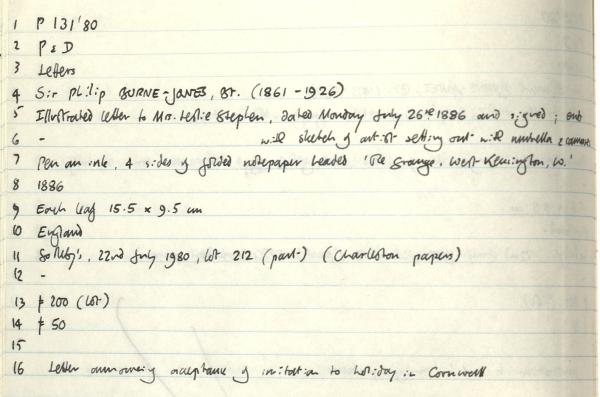 1 P 131'80
2 P & D
3 Letters
4 Sir Philip BURNE-JONES, Bt. (1861-1926)
5 Illustrated letter to Mrs. Leslie Stephen, dated Monday July 26th 1886 and signed; ends
6 - with sketch of artist setting out with umbrella &
7 Pen an ink, 4 sides of folded notepaper headed 'The Grange, West Kensington, W.'
8 1886
9 Each leaf 15.5 x 9.5 cm
10 England
11 Sotheby's, 22nd July 1980, lot 212 (part) (Charleston papers)
12 -
13 £ 200 (lot)
14 £ 50
15
16 Letter announcing acceptance of invitation to holiday in Cornwall